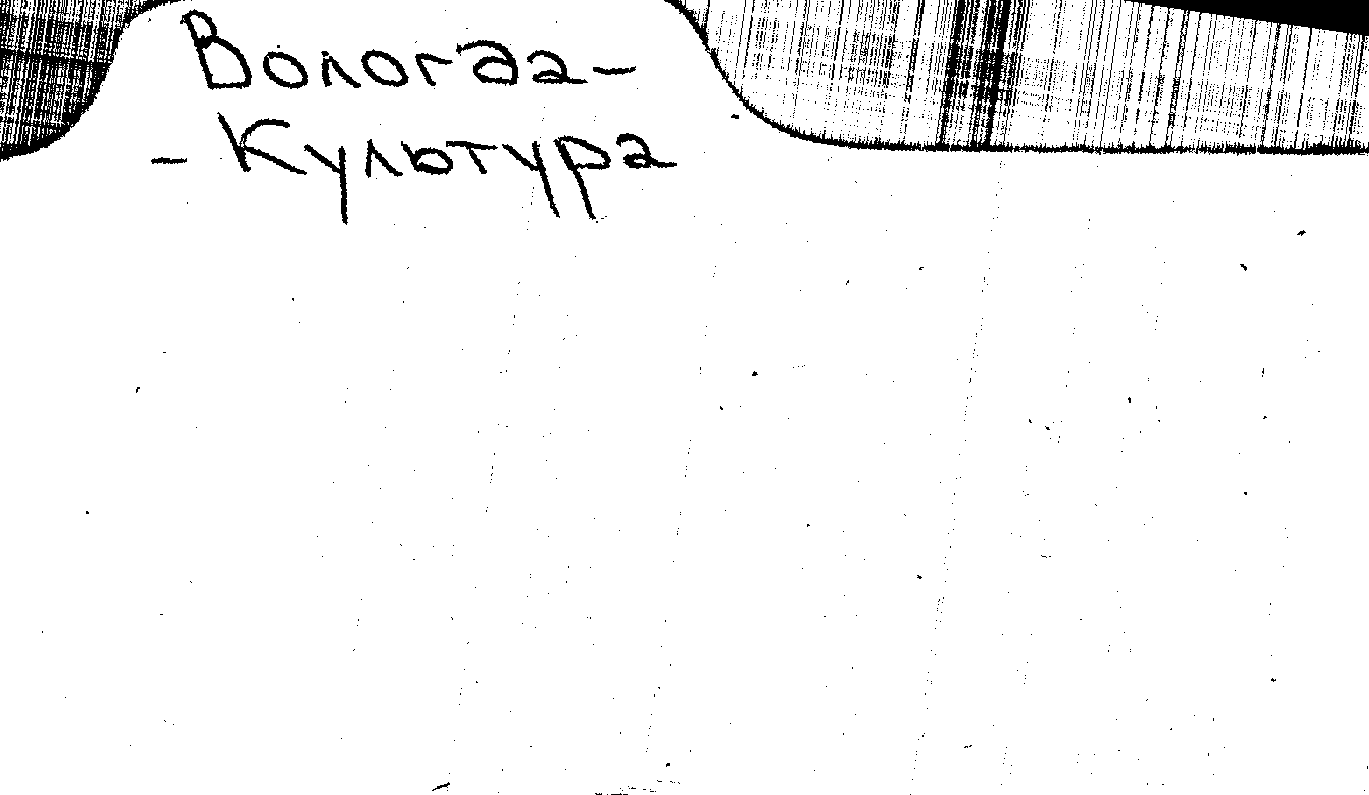 Вологда-
- Культура